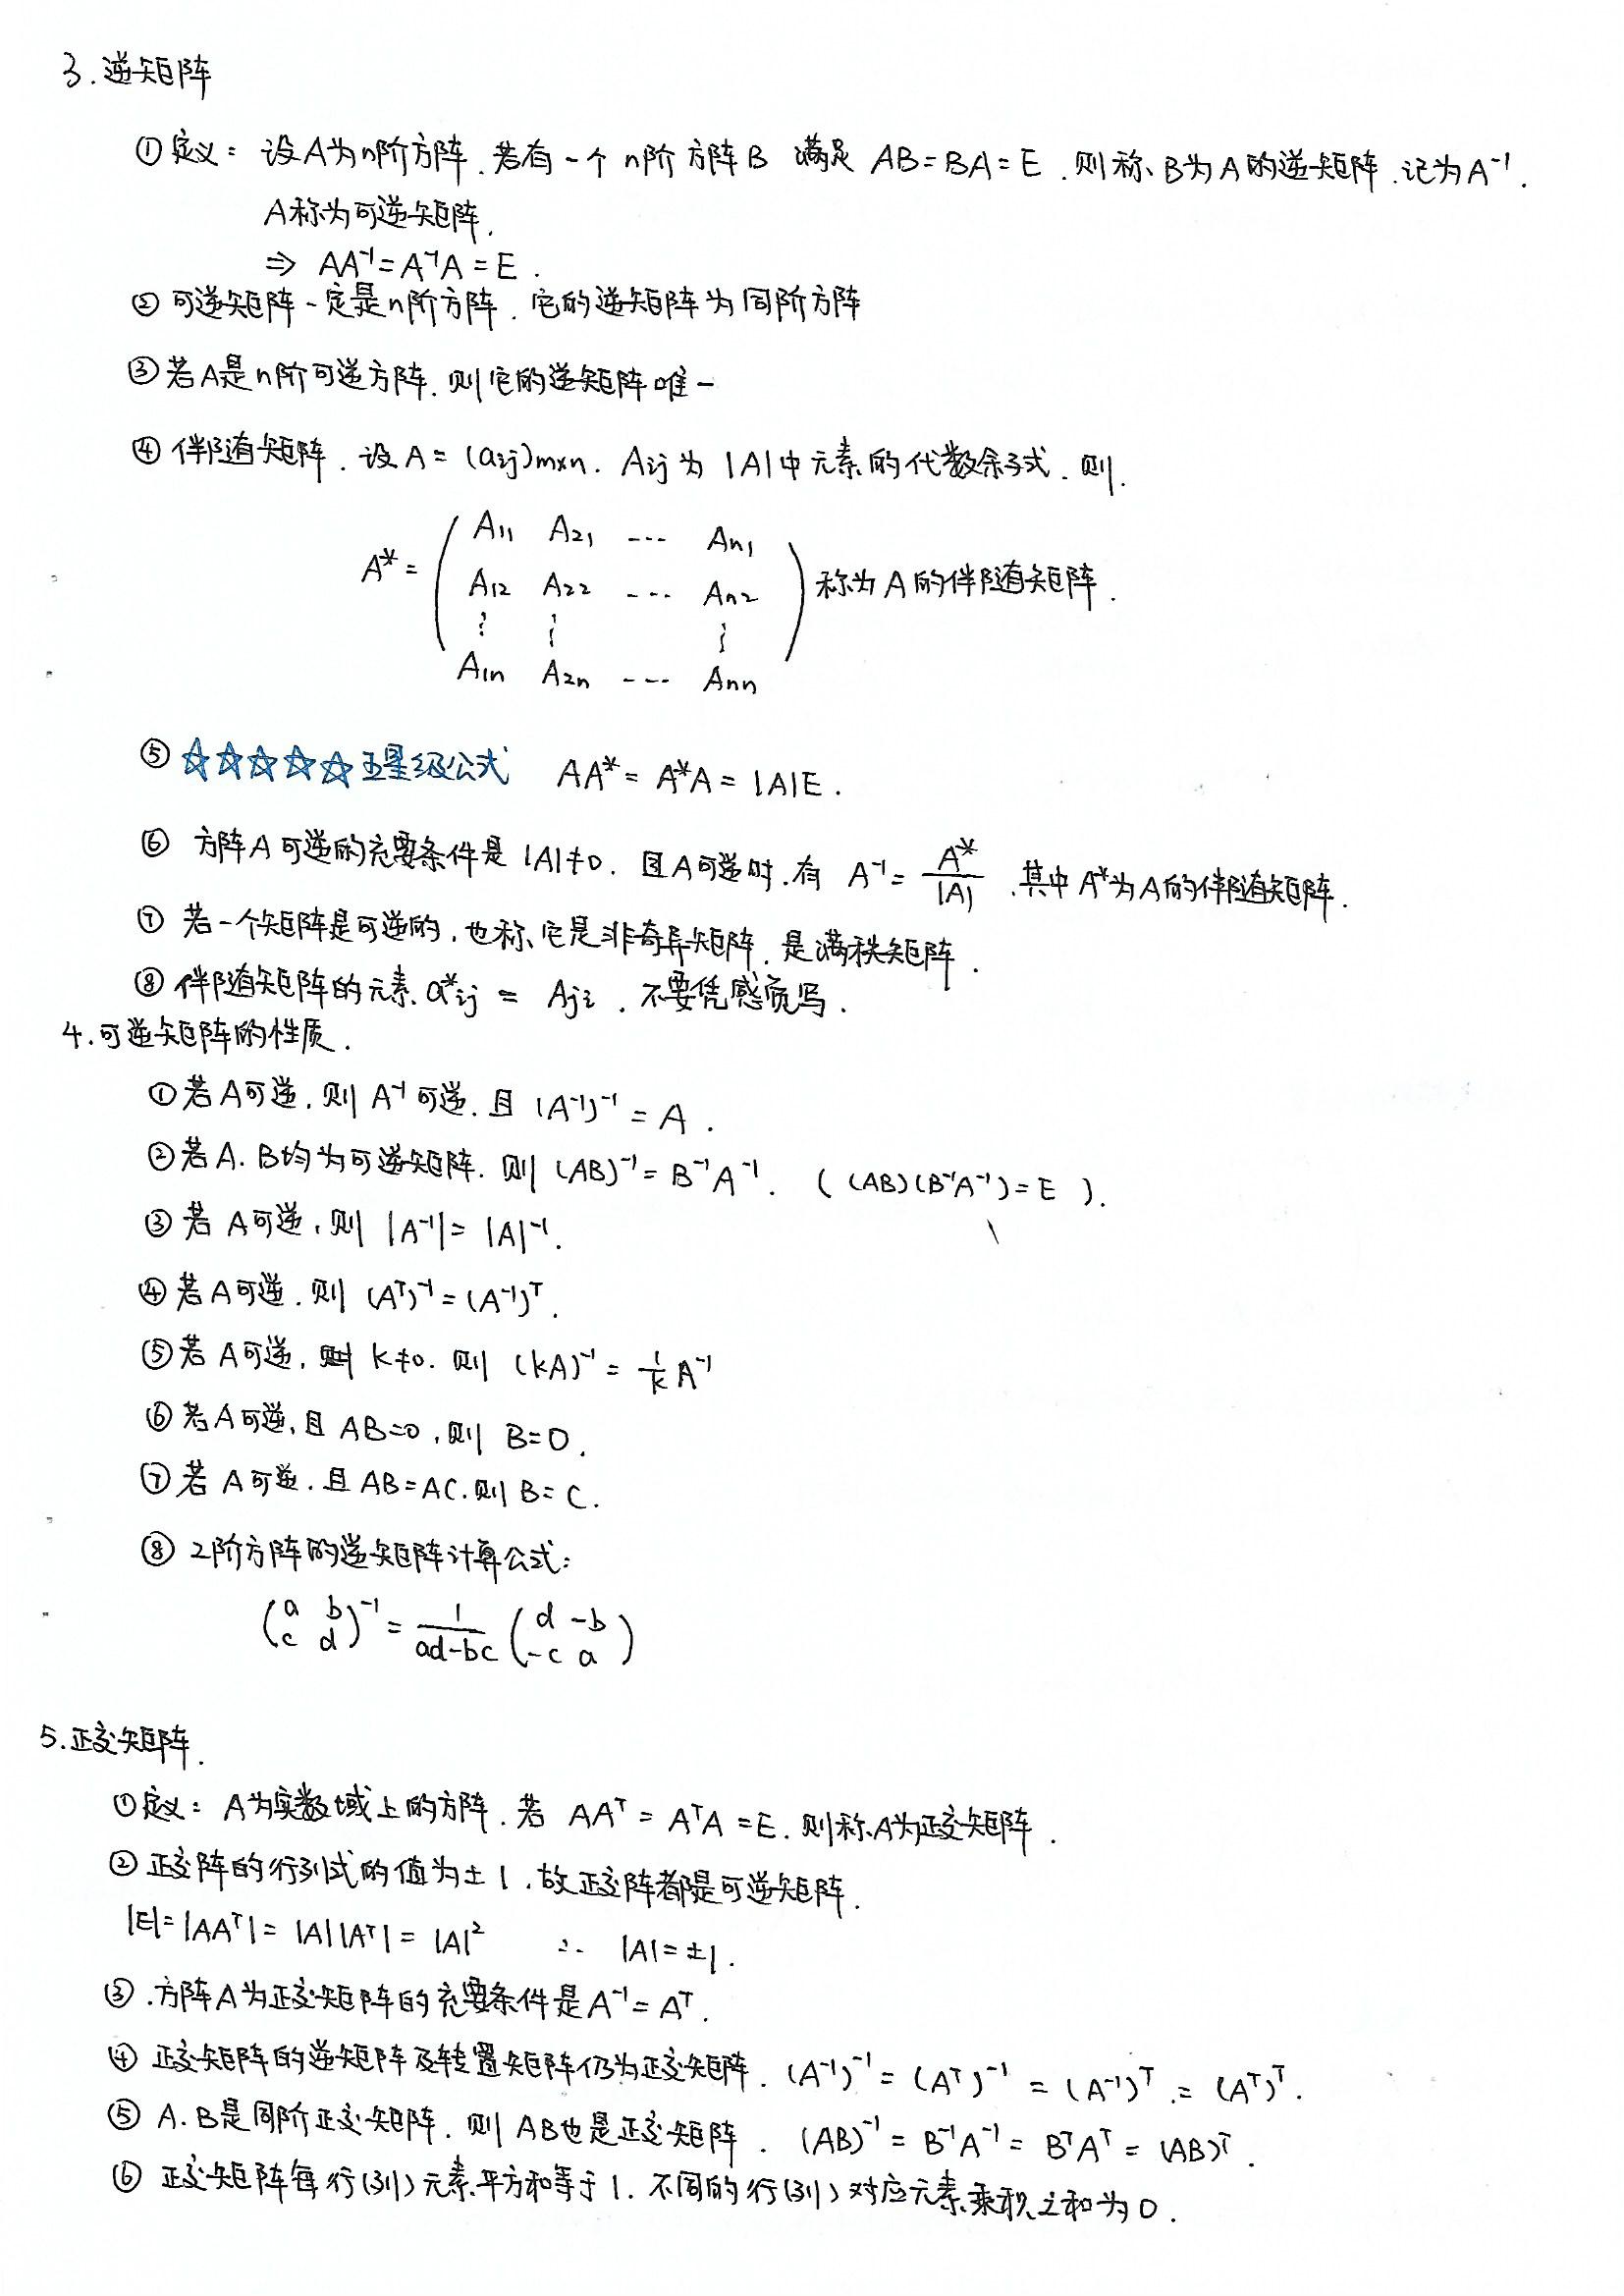 3. 逆矩阵
① 定义: 设A为n阶方阵. 若有一个 n阶方阵B 满足 AB=BA=E. 则称B为A的逆矩阵. 记为A⁻¹.
A称为可逆矩阵.
⇒ AA⁻¹=A⁻¹A=E.
② 可逆矩阵一定是n阶方阵. 它的逆矩阵为同阶方阵
③ 若A是n阶可逆方阵. 则它的逆矩阵唯一
④ 伴随矩阵. 设A=(aij)m×n. Aij为|A|中元素的代数余子式. 则.
A* = ( A₁₁ A₂₁ --- An₁
A₁₂ A₂₂ --- An₂
⋮ ⋮ ⋮
A₁n A₂n --- Ann ) 称为A的伴随矩阵.
⑤ ☆☆☆☆☆五星级公式 AA*=A*A=|A|E.
⑥ 方阵A可逆的充要条件是|A|≠0. 且A可逆时. 有 A⁻¹= A*/|A| . 其中A*为A的伴随矩阵.
⑦ 若一个矩阵是可逆的, 也称它是非奇异矩阵. 是满秩矩阵.
⑧ 伴随矩阵的元素 a*ij = Aji. 不要凭感觉写.
4. 可逆矩阵的性质.
① 若A可逆. 则A⁻¹可逆. 且(A⁻¹)⁻¹=A.
② 若A.B均为可逆矩阵. 则(AB)⁻¹=B⁻¹A⁻¹. ((AB)(B⁻¹A⁻¹)=E).
③ 若A可逆, 则|A⁻¹|=|A|⁻¹.
④ 若A可逆. 则(Aᵀ)⁻¹=(A⁻¹)ᵀ.
⑤ 若A可逆, k≠0. 则(kA)⁻¹= 1/k A⁻¹
⑥ 若A可逆, 且AB=0, 则B=0.
⑦ 若A可逆. 且AB=AC. 则B=C.
⑧ 2阶方阵的逆矩阵计算公式:
(a b
c d)⁻¹ = 1/(ad-bc) (d -b
-c a)
5. 正交矩阵.
① 定义: A为实数域上的方阵. 若 AAᵀ=AᵀA=E. 则称A为正交矩阵.
② 正交阵的行列式的值为±1. 故正交阵都是可逆矩阵.
|E|=|AAᵀ|=|A||Aᵀ|=|A|² ∴ |A|=±1.
③. 方阵A为正交矩阵的充要条件是A⁻¹=Aᵀ.
④ 正交矩阵的逆矩阵及转置矩阵仍为正交矩阵. (A⁻¹)⁻¹=(Aᵀ)⁻¹=(A⁻¹)ᵀ.=(Aᵀ)ᵀ.
⑤ A.B是同阶正交矩阵. 则AB也是正交矩阵. (AB)⁻¹=B⁻¹A⁻¹=BᵀAᵀ=(AB)ᵀ.
⑥ 正交矩阵每行(列)元素平方和等于1. 不同的行(列)对应元素乘积之和为0.